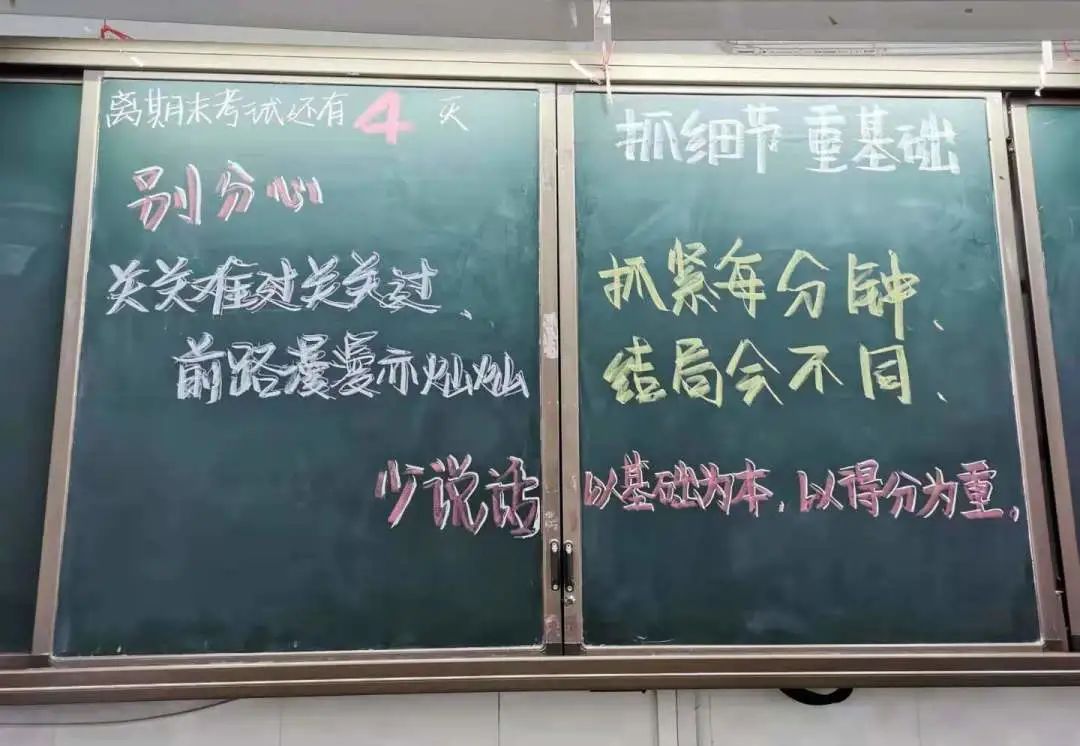 离期末考试还有4天
别分心
关关难过关关过、
前路漫漫亦灿灿
少说话
抓细节 重基础
抓紧每分钟、
结局会不同、
以基础为本,以得分为重。